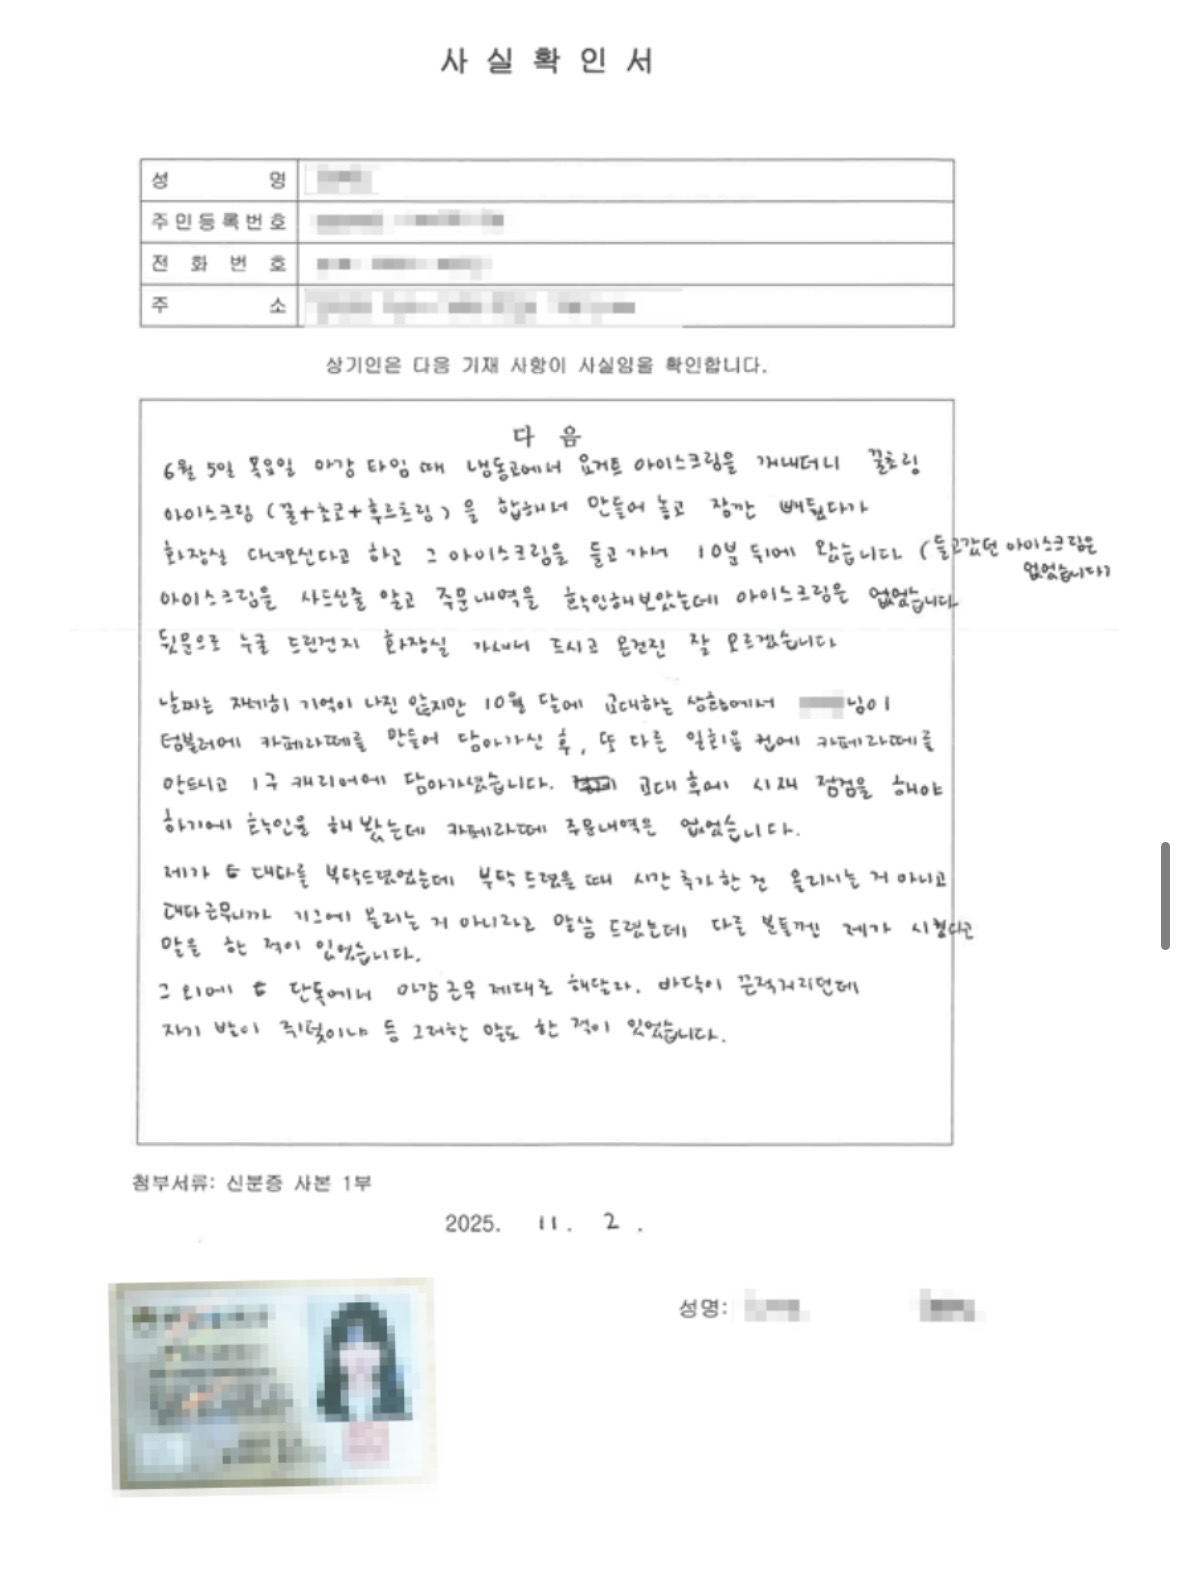 사 실 확 인 서
성 명
주민등록번호
전 화 번 호
주 소
상기인은 다음 기재 사항이 사실임을 확인합니다.
다 음
6월 5일 목요일 마감 타임 때 냉동고에서 요거트 아이스크림을 꺼내더니 꿀초링
아이스크림 (꿀+초코+후르츠링) 을 합해서 만들어 놓고 잠깐 빼뒀다가
화장실 다녀오신다고 하고 그 아이스크림을 들고가서 10분 뒤에 왔습니다 (들고갔던 아이스크림은
없었습니다)
아이스크림을 사드신줄 알고 주문내역을 확인해보았는데 아이스크림은 없었습니다
뒷문으로 누굴 드린건지 화장실 가셔서 드시고 온건진 잘 모르겠습니다
날짜는 자세히 기억이 나진 않지만 10월 달에 교대하는 상황에서 님이
텀블러에 카페라떼를 만들어 담아가신 후, 또 다른 일회용 컵에 카페라떼를
만드시고 1구 캐리어에 담아가셨습니다. 교대 후에 시재 점검을 해야
하기에 확인을 해 봤는데 카페라떼 주문내역은 없었습니다.
제가 대타를 부탁드렸었는데 부탁 드렸을 때 시간 추가 한 건 올리시는 거 아니고
대타근무니까 기그에 올리는 거 아니라고 말씀 드렸는데 다른 분들껜 제가 시켰다고
말을 한 적이 있었습니다.
그 외에 단톡에서 마감근무 제대로 해달라. 바닥이 끈적거리던데
자기 발이 쥐덫이냐 등 그러한 말도 한 적이 있었습니다.
첨부서류: 신분증 사본 1부
2025. 11. 2.
성명: